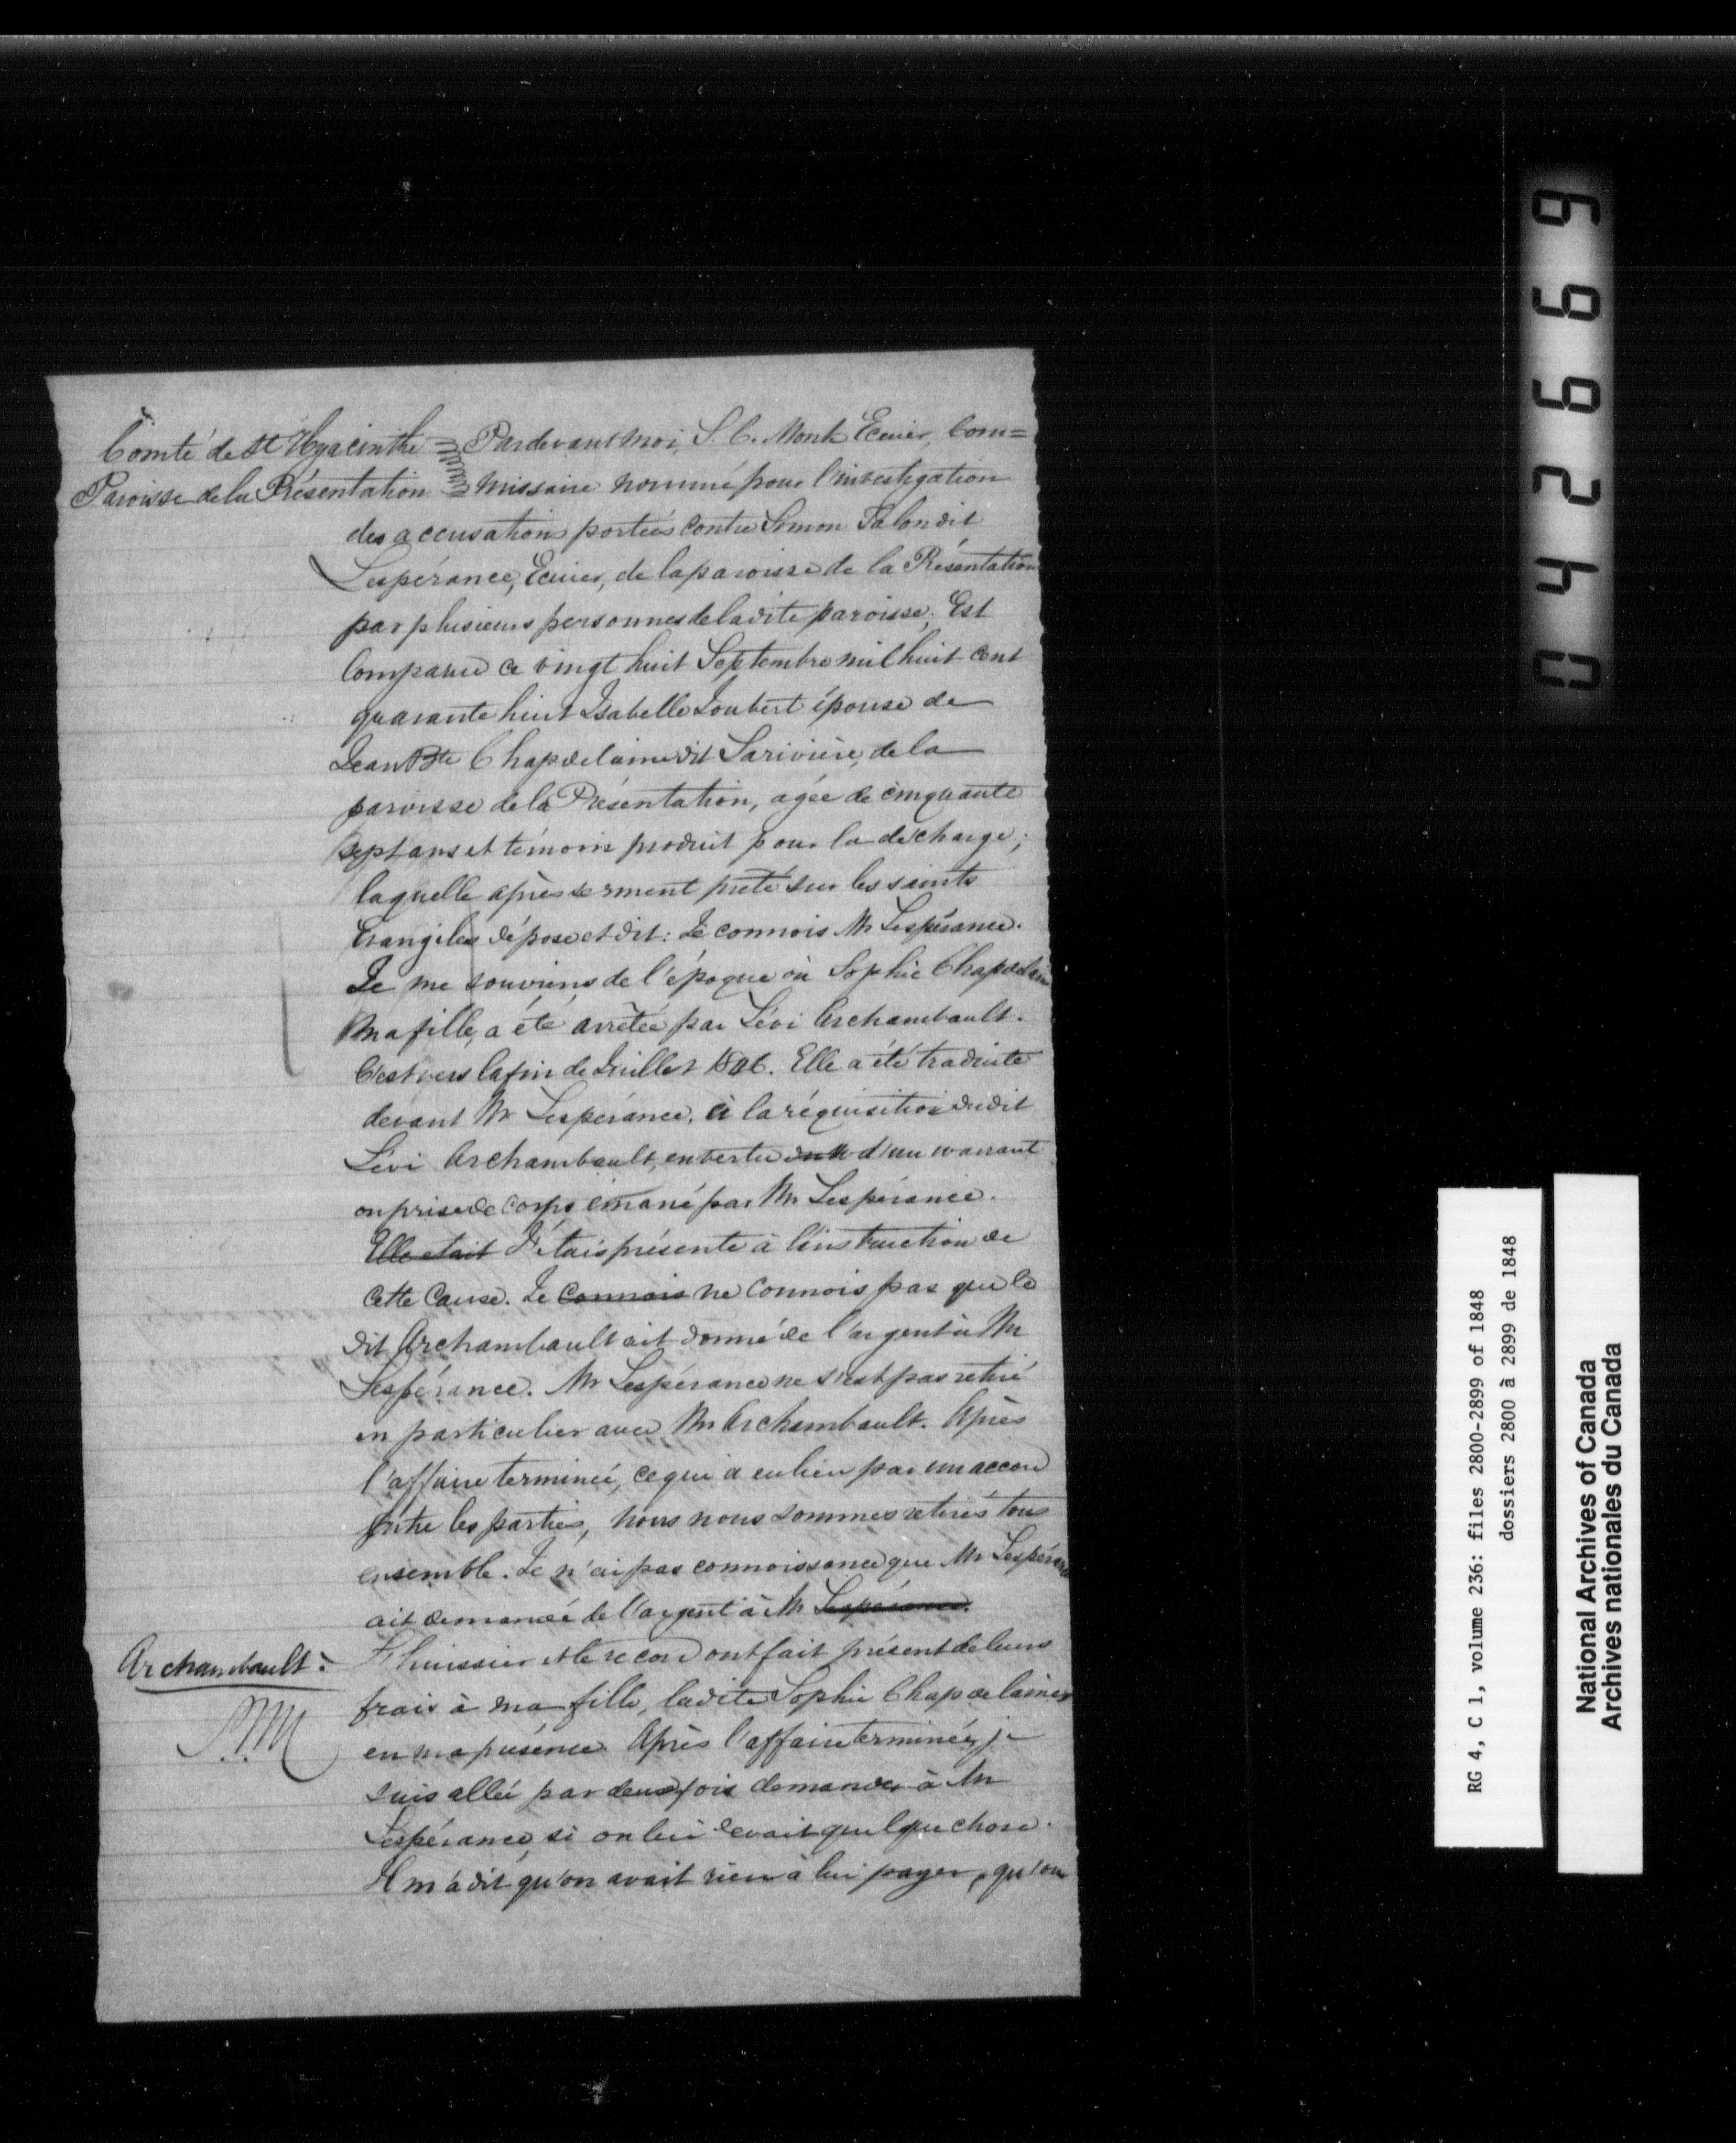 Comté de St Hyacinthe = Pardevant moi, S. C. Monk Ecuier, Com=
Paroisse de la Présentation missaire nommé pour l'investigation
des accusations portées contre Simon Talon dit
Lespérance, Ecuier, de la paroisse de la Présentation
par plusieurs personnes de la dite paroisse; Est
Comparue ce vingt huit Septembre mil huit cent
quarante huit Isabelle Joubert épouse de
Jean Bte Chapdelaine dit Larivière, de la
paroisse de la Présentation, agée de cinquante
sept ans et témoin produit pour la décharge;
laquelle après serment prêté sur les saints
Evangiles dépose et dit: Je connois Mr Lespérance.
Je me souviens de l'époque où Sophie Chapdelaine
ma fille, a été arrêtée par Lévi Archambault.
C'est vers la fin de Juillet 1846. Elle a été traduite
devant Mr Lespérance, à la réquisition du dit
Lévi Archambault, en vertu d'un warrant
ou prise de corps émané par Mr Lespérance.
Elle etait J'étais présente à l'instruction de
cette cause. Je connois ne connois pas que le
dit Archambault ait donné de l'argent à Mr
Lespérance. Mr Lespérance ne s'est pas retiré
en particulier avec Mr Archambault. Après
l'affaire terminée, ce qui a eu lieu par un accord
entre les parties, nous nous sommes retirés tous
ensemble. Je n'ai pas connoissance que Mr Lespérance
ait demandé de l'argent à Mr Lespérance.
Archambault. L'huissier et le record ont fait présent de leurs
frais à ma fille, la dite Sophie Chapdelaine,
en ma présence. Après l'affaire terminée, je
suis allée par deux fois demander à Mr
Lespérance, si on lui devait quelque chose.
Il m'a dit qu'on avait rien à lui payer, qu'on
042669
RG 4, C 1, volume 236: files 2800-2899 of 1848
dossiers 2800 à 2899 de 1848
National Archives of Canada
Archives nationales du Canada